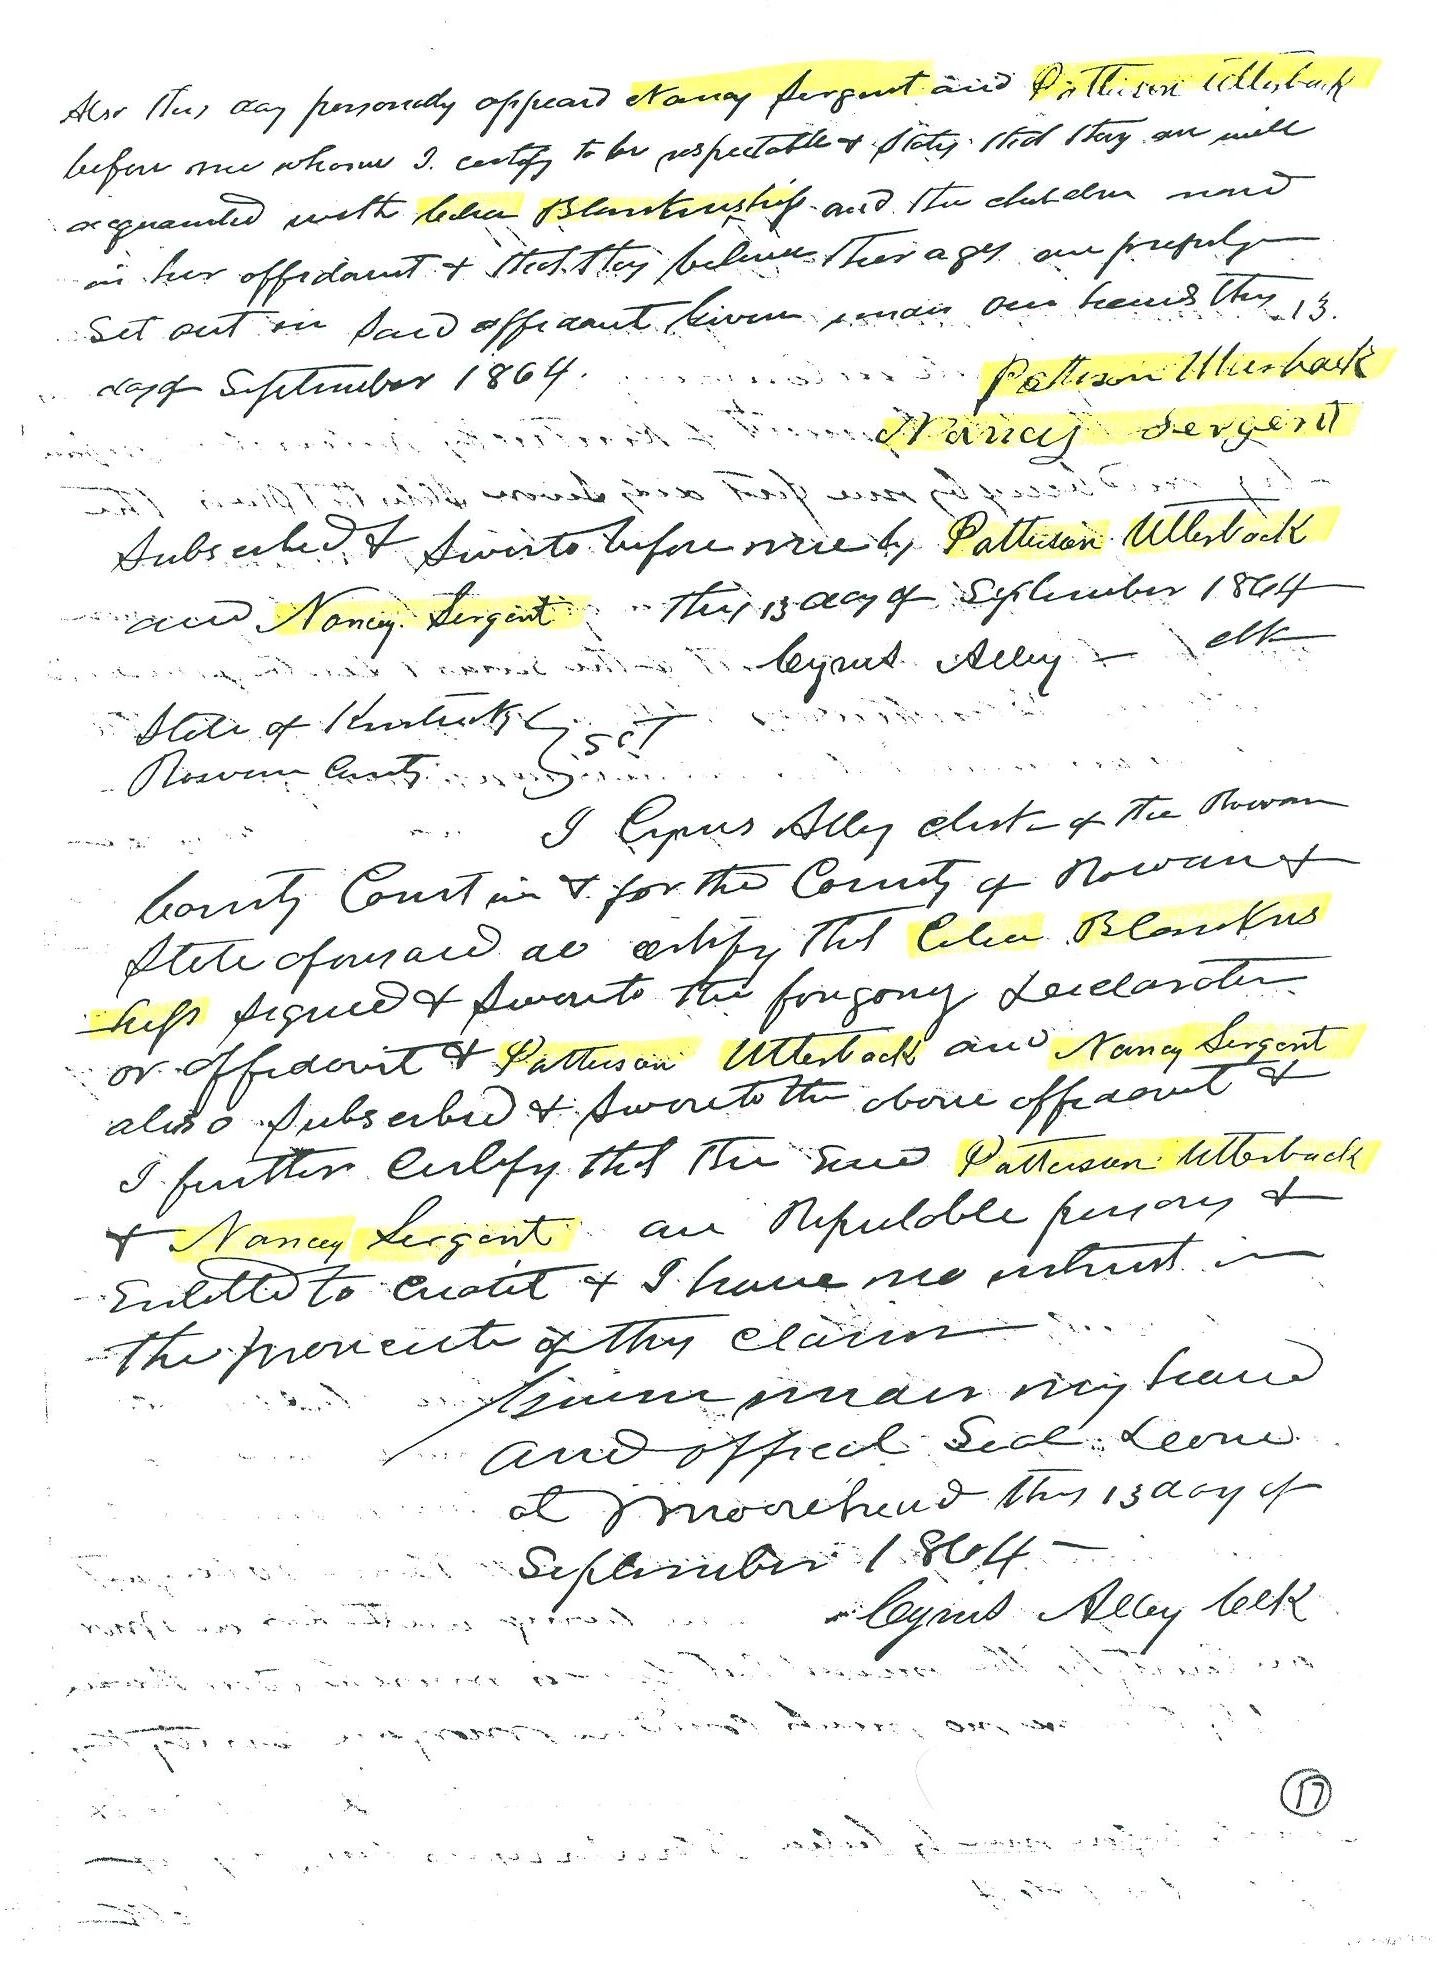 Also this day personally appeard Nancy Sergent and Patterson Utterback
before me whom I certify to be respectable & State that they are well
acquainted with Celia Blankenship and the children name
in her affidavit & that they believe their ages are properly
Set out in Said affidavit Given under our hands this 13
day of September 1864.
Patterson Utterback
Nancy Sergent
Subscribed & Sworn to before me by Patterson Utterback
and Nancy Sergent this 13 day of September 1864
Cyrus Alley clk
State of Kentucky } SCT
Rowan County
I Cyrus Alley clerk of the Rowan
County Court in & for the County of Rowan &
State aforesaid do certify that Celia Blankens
hip signed & Swore to the forgoing Declaration
or affidavit & Patterson Utterback and Nancy Sergent
also Subscribed & Swore to the above affidavit &
I further Certify that the Said Patterson Utterback
& Nancy Sergent are Reputable persons &
Entitled to credit & I have no intrest in
the prosecute of this claim
Given under my hand
and official Seal
at Moorehead this 13 day of
September 1864
Cyrus Alley Clk
17